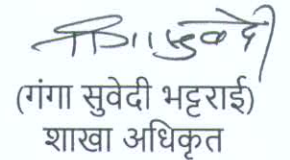 (गंगा सुवेदी भट्टराई)
शाखा अधिकृत